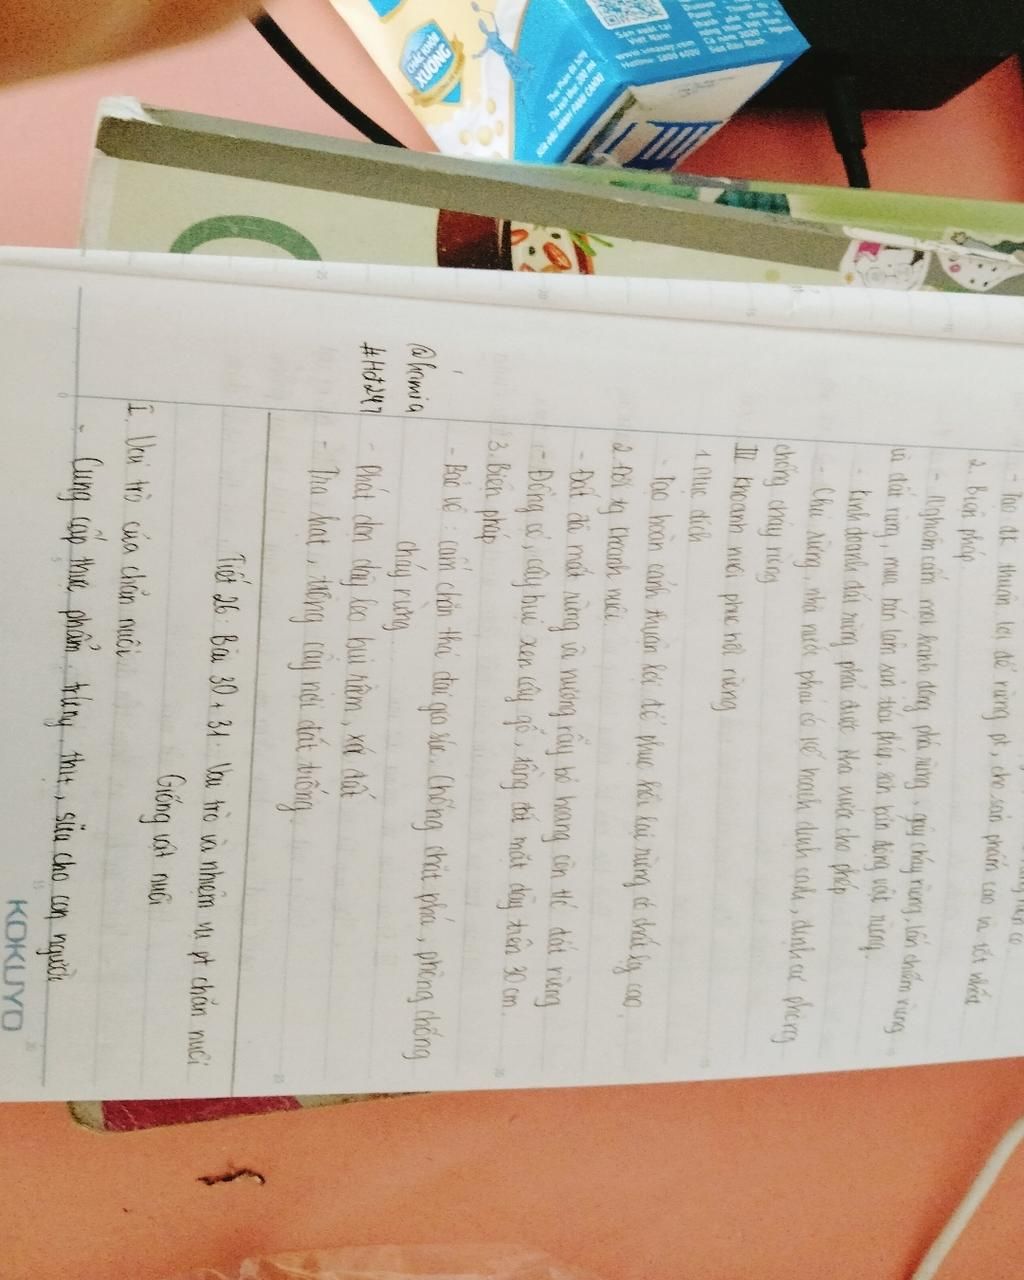 - Tạo đk thuận lợi để rừng pt, cho sản phẩm cao và tốt nhất
2. Biện pháp
- Nghiêm cấm mọi hành động phá rừng, gây cháy rừng, lấn chiếm rừng
và đất rừng, mua bán lâm sản trái phép, săn bắn động vật rừng.
- Kinh doanh đất rừng phải được nhà nước cho phép
- Chủ rừng, nhà nước phải có kế hoạch định canh, định cư phòng
chống cháy rừng
III Khoanh nuôi phục hồi rừng
1. Mục đích
- Tạo hoàn cảnh thuận lợi để phục hồi lại rừng có chất lg cao.
2. Đối tg khoanh nuôi
- Đất đã mất rừng và nương rẫy bỏ hoang còn t/c đất rừng
- Đồng cỏ, cây bụi xen cây gỗ, tầng đất mặt dày trên 30 cm.
3. Biện pháp
- Bảo vệ: cấm chăn thả đại gia súc. Chống chặt phá, phòng chống
cháy rừng
- Phát dọn dây leo bụi rậm, xới đất
- Tra hạt, trồng cây nơi đất trống
@hamia
#Hđ247
Tiết 26: Bài 30 + 31. Vai trò và nhiệm vụ pt chăn nuôi
Giống vật nuôi
I. Vai trò của chăn nuôi
- Cung cấp thực phẩm trứng, thịt, sữa cho con người
KOKUYO
CHẮC KHỎE
XƯƠNG
Sản xuất
Việt Nam
Hotline: 1800 6000